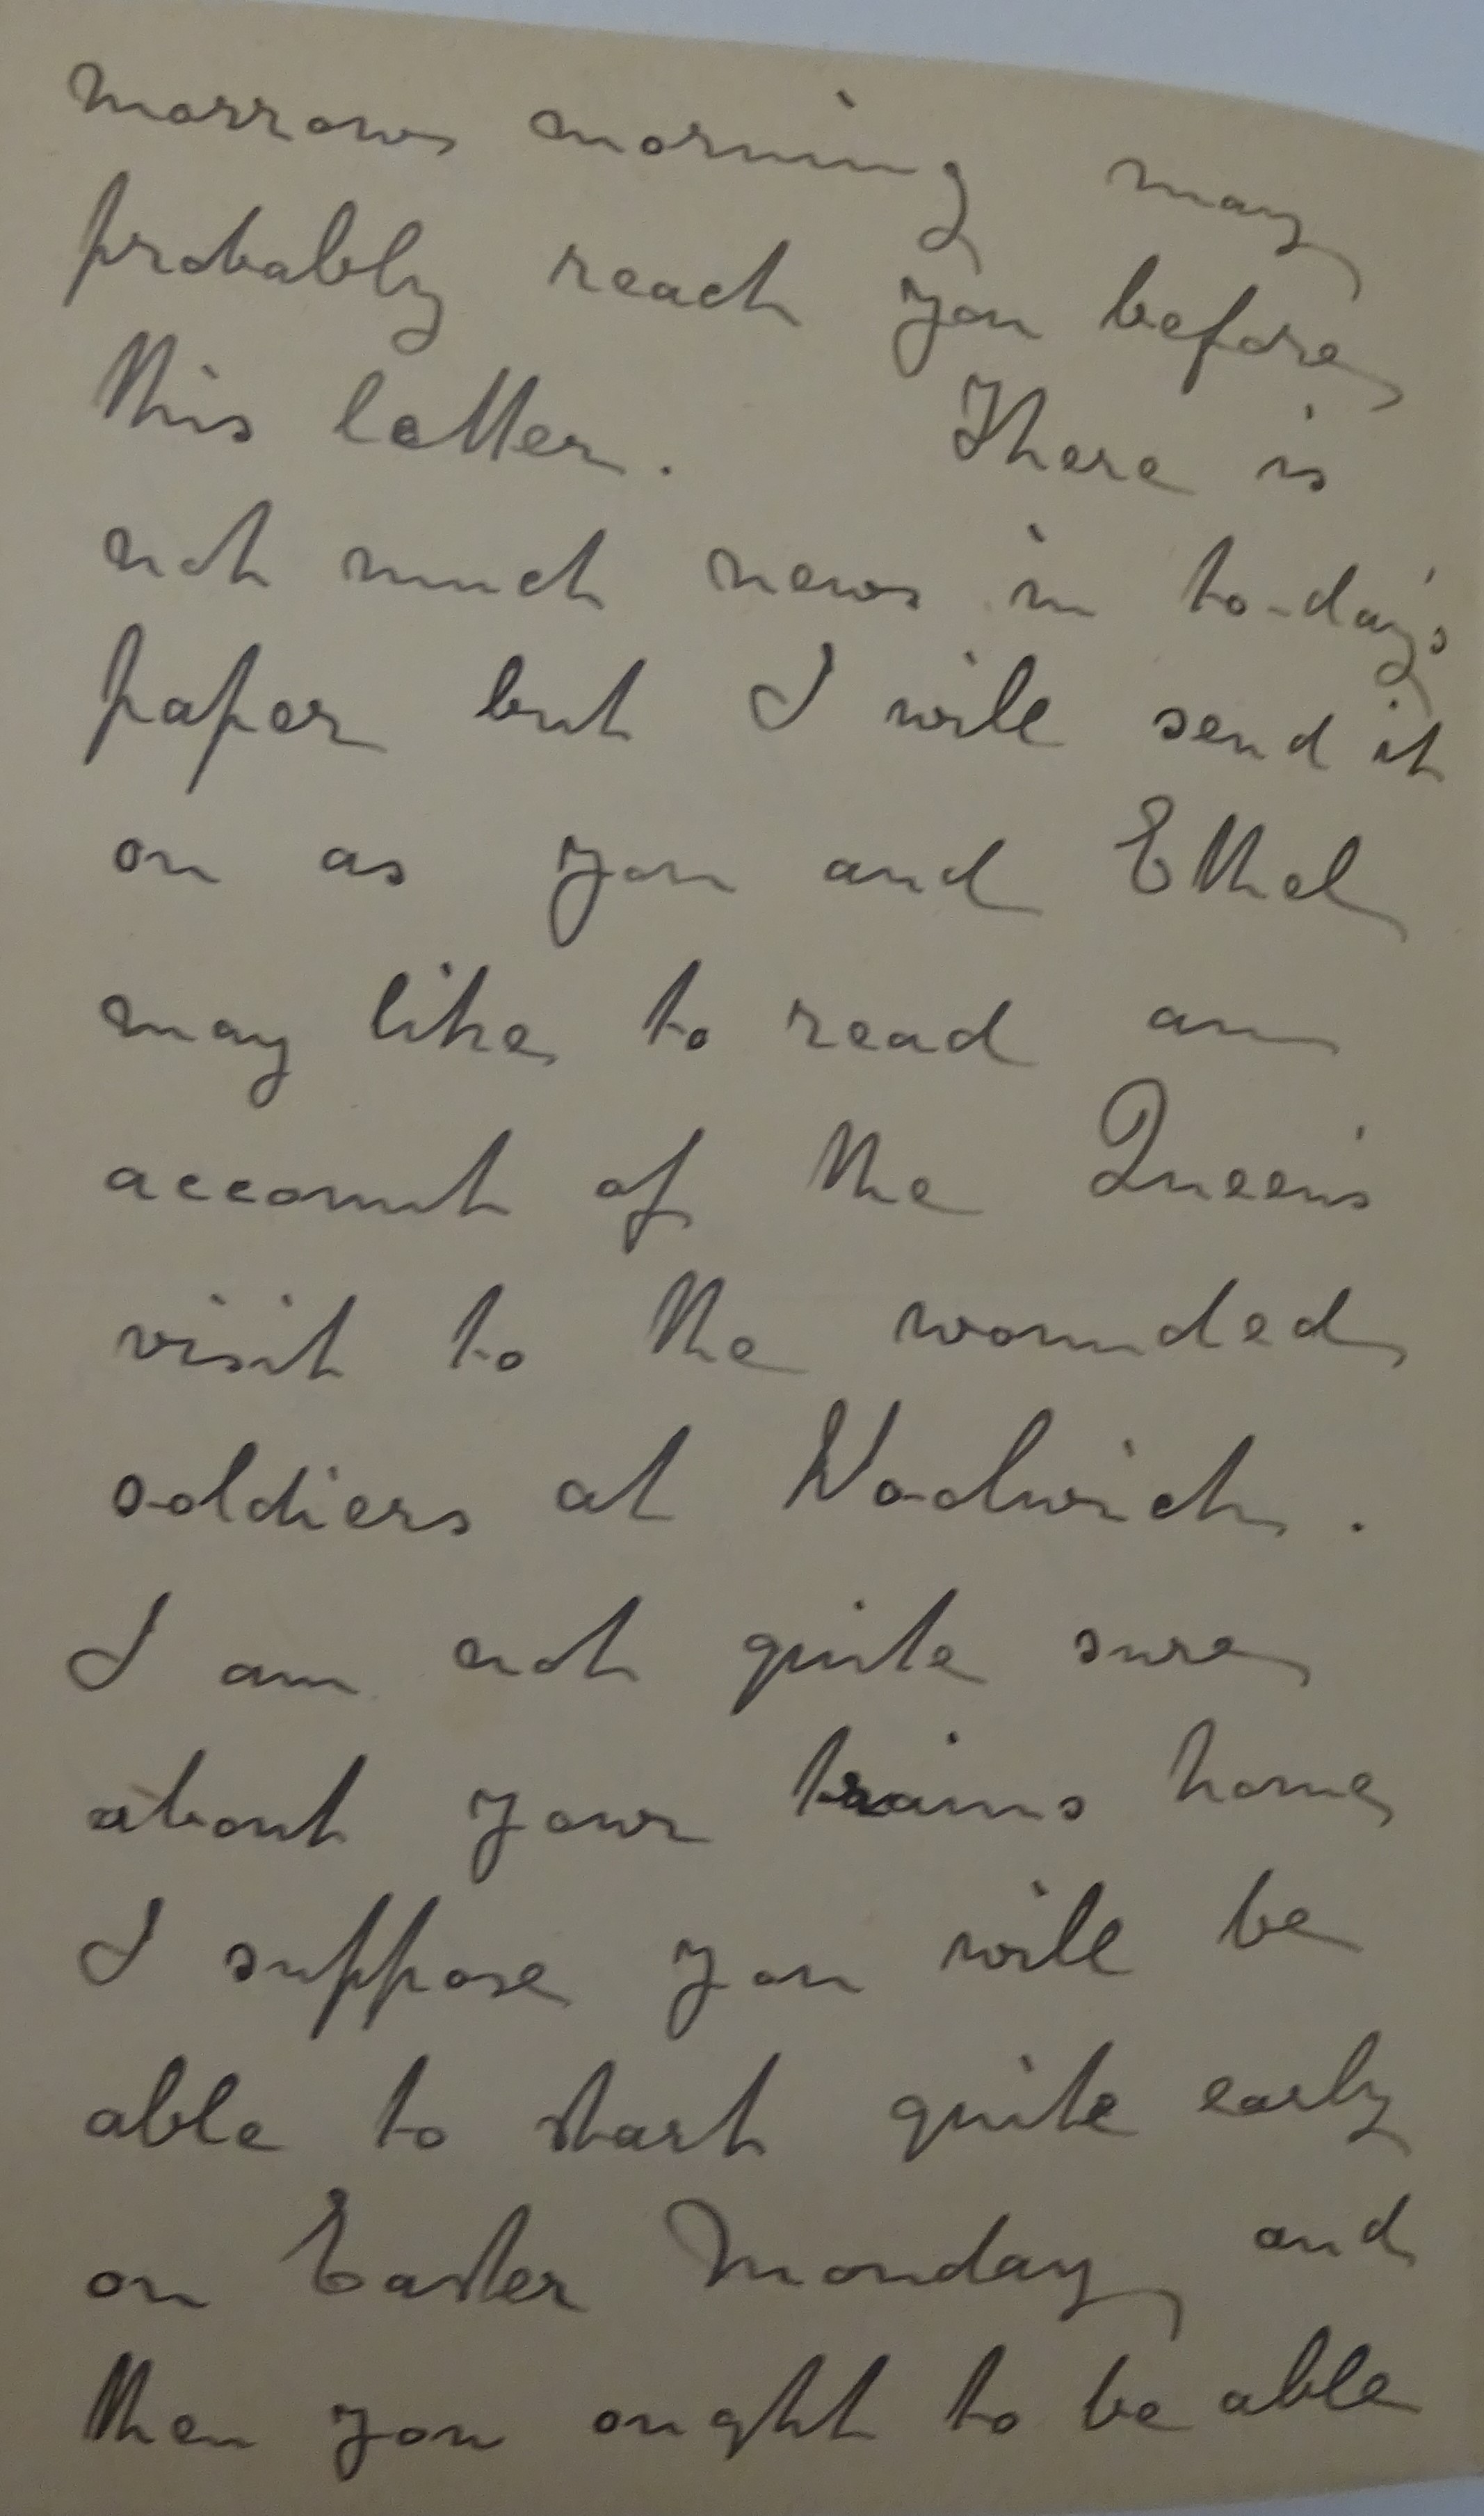 morrows morning may
probably reach you before
this letter. There is
not much news in to-day's
paper but I will send it
on as you and Ethel
may like to read an
account of the Queen's
visit to the wounded
soldiers at Woolwich.
I am not quite sure
about your trains home
I suppose you will be
able to start quite early
on Easter Monday and
then you ought to be able